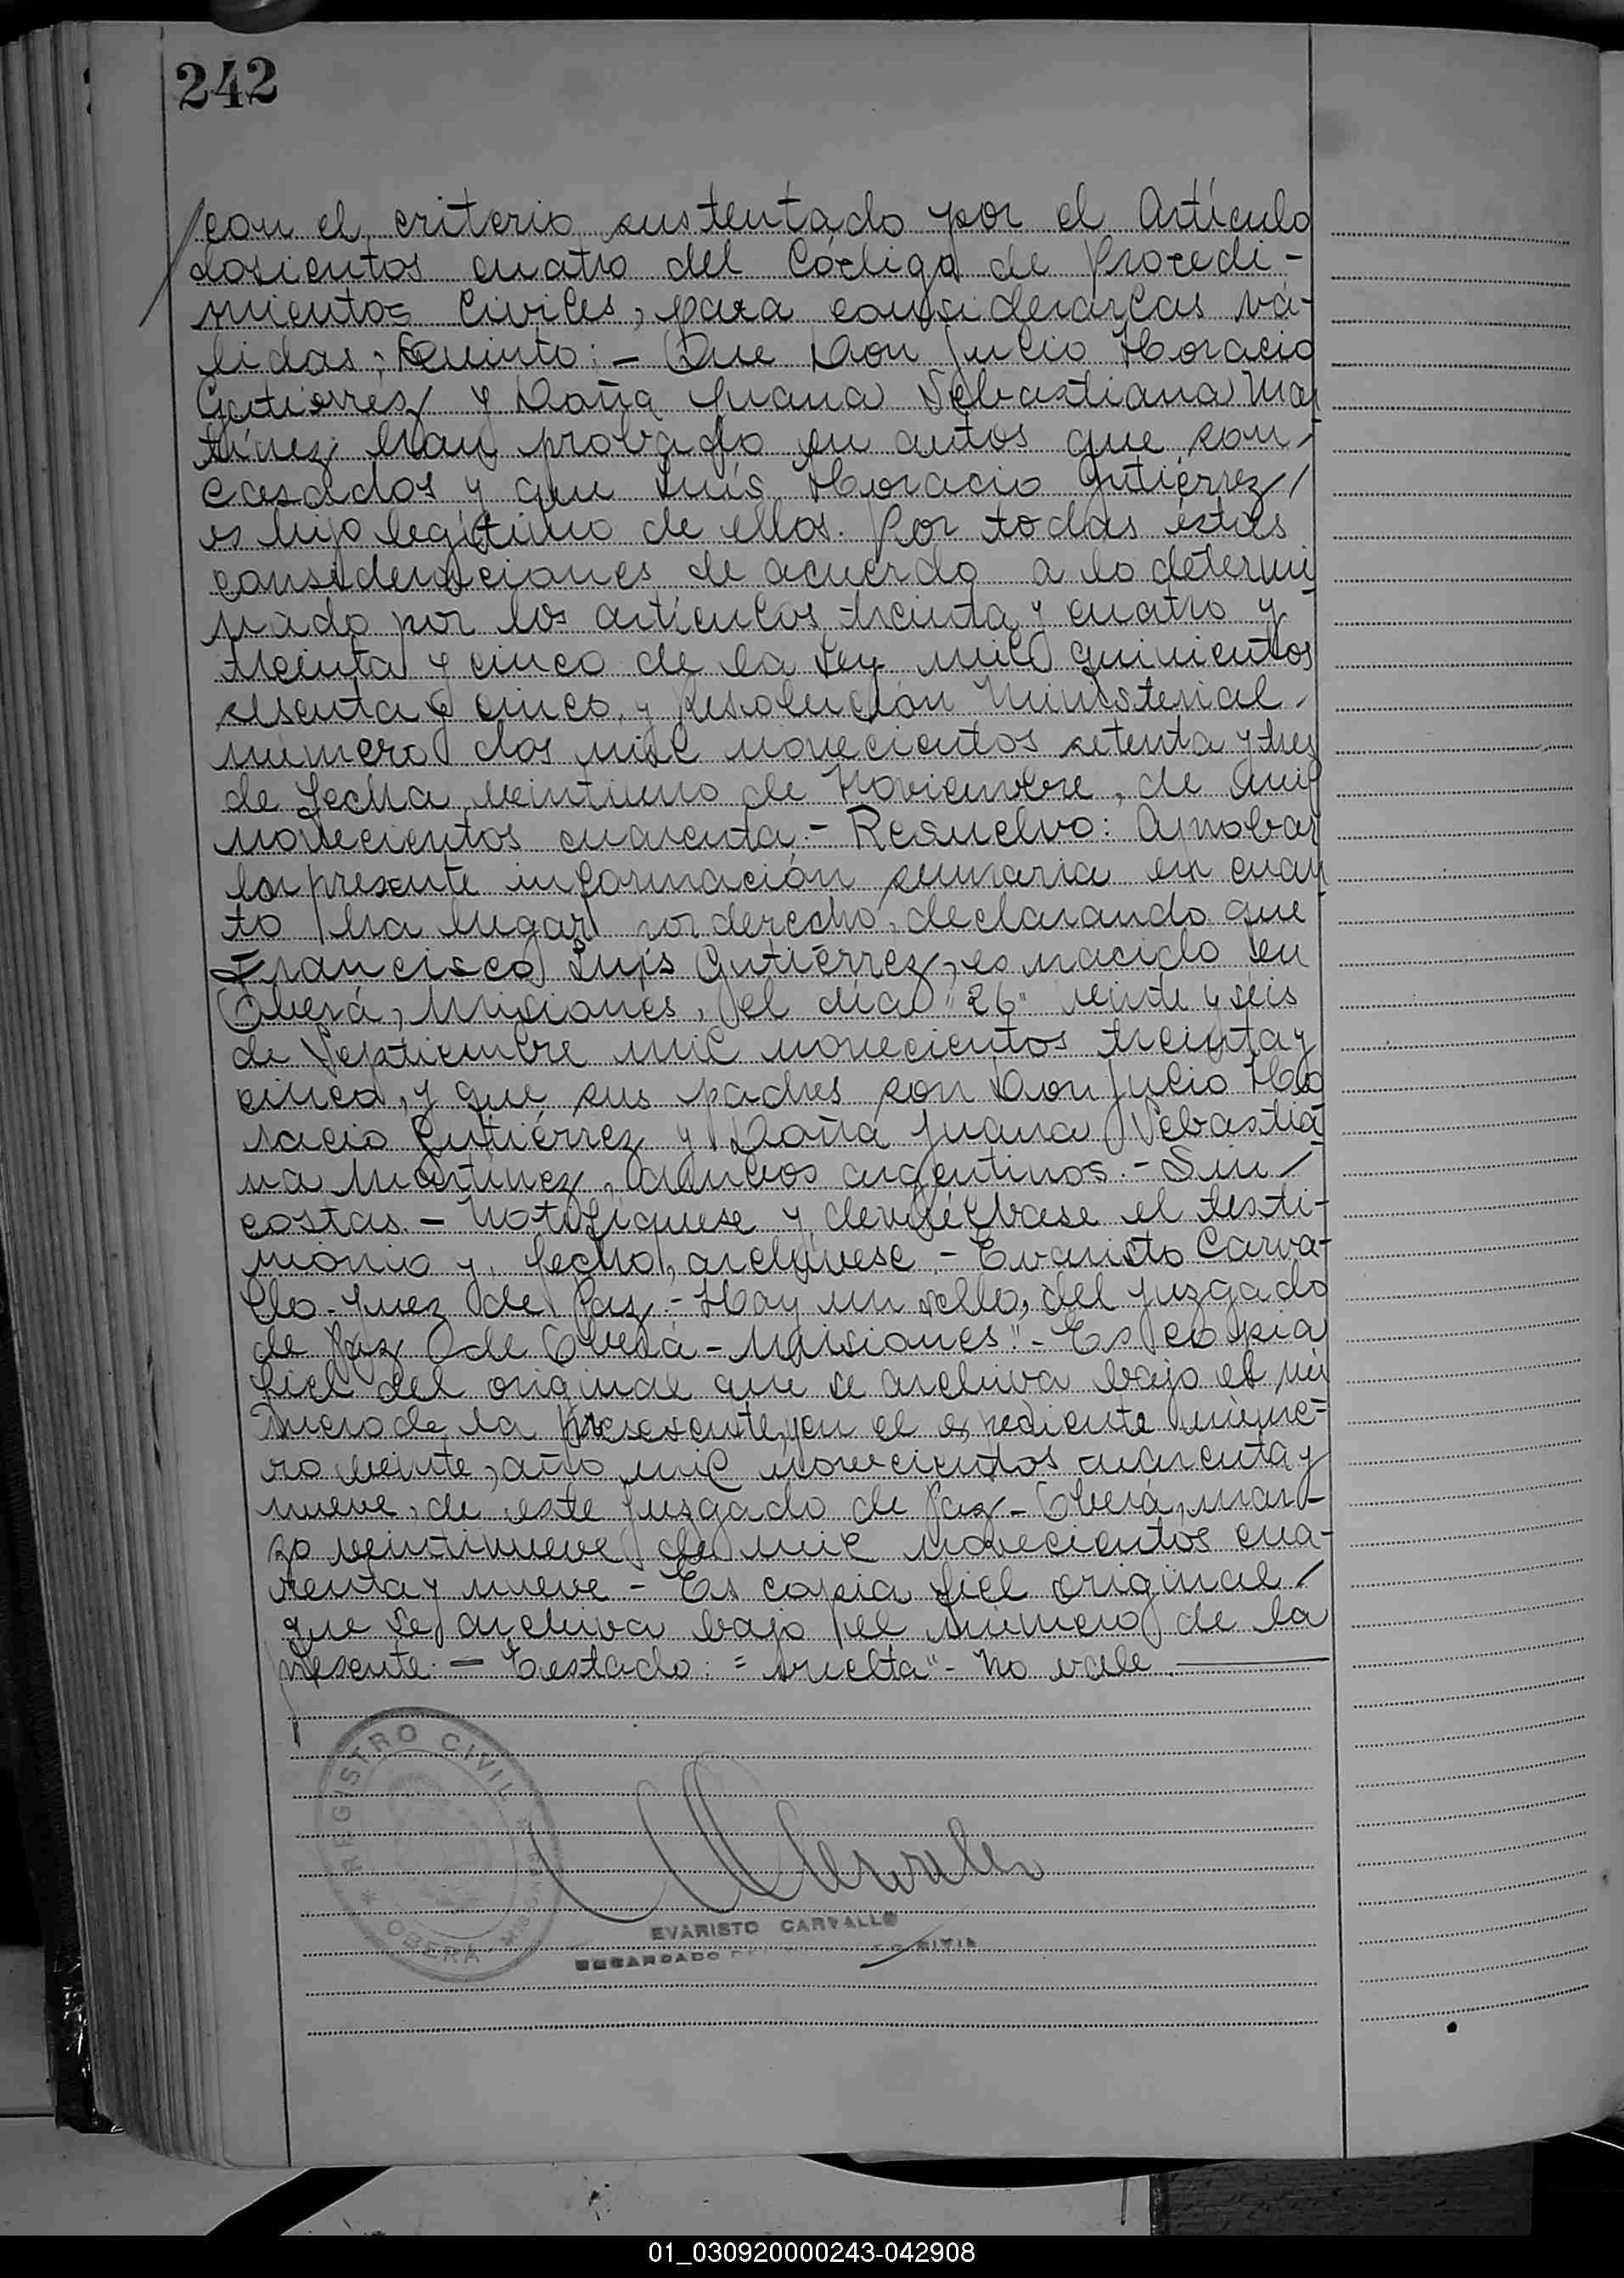 242
con el criterio sustentado por el Artículo
dosientos cuatro del Código de Procedi-
mientos Civiles, para considerarlas vá-
lidas; Quinto:- Que Don Julio Horacio
Gutiérrez y Doña Juana Sebastiana Mar
tínez han probado en autos que son
casados y que Luís Horacio Gutiérrez/
es hijo legítimo de ellos. Por todas éstas
consideraciones de acuerdo a lo determi
nado por los artículos treinta y cuatro y
treinta y cinco de la Ley mil quinientos
sesenta y cinco y Resolución Ministerial
número dos mil novecientos setenta y tres
de fecha veintiuno de Noviembre, de mil
novecientos cuarenta.- Resuelvo: Aprobar
la presente información sumaria en cuan
to ha lugar por derecho, declarando que
Francisco Luís Gutiérrez, es nacido en
Oberá, Misiones, el día "26" veinte y seis
de Septiembre mil novecientos treinta y
cinco, y que sus padres son Don Julio Ho
racio Gutiérrez y Doña Juana Sebastia
na Martínez, ambos argentinos.- Sin/
costas.- Notifíquese y devuélvase el testi-
monio y, fecho, archívese.- Evaristo Carva-
llo- Juez de Paz.- Hay un sello, del Juzgado
de Paz de Oberá - Misiones".- Es copia
fiel del original que se archiva bajo el nú
mero de la presente, en el expediente núme-
ro veinte, año mil novecientos cuarenta y
nueve, de este Juzgado de Paz - Oberá, mar-
zo veintinueve de mil novecientos cua-
renta y nueve - Es copia fiel original/
que se archiva bajo el número de la
presente. - Testado: = vuelta"- No vale.
REGISTRO CIVIL
OBERÁ
EVARISTO CARVALLO
ENCARGADO
01_030920000243-042908